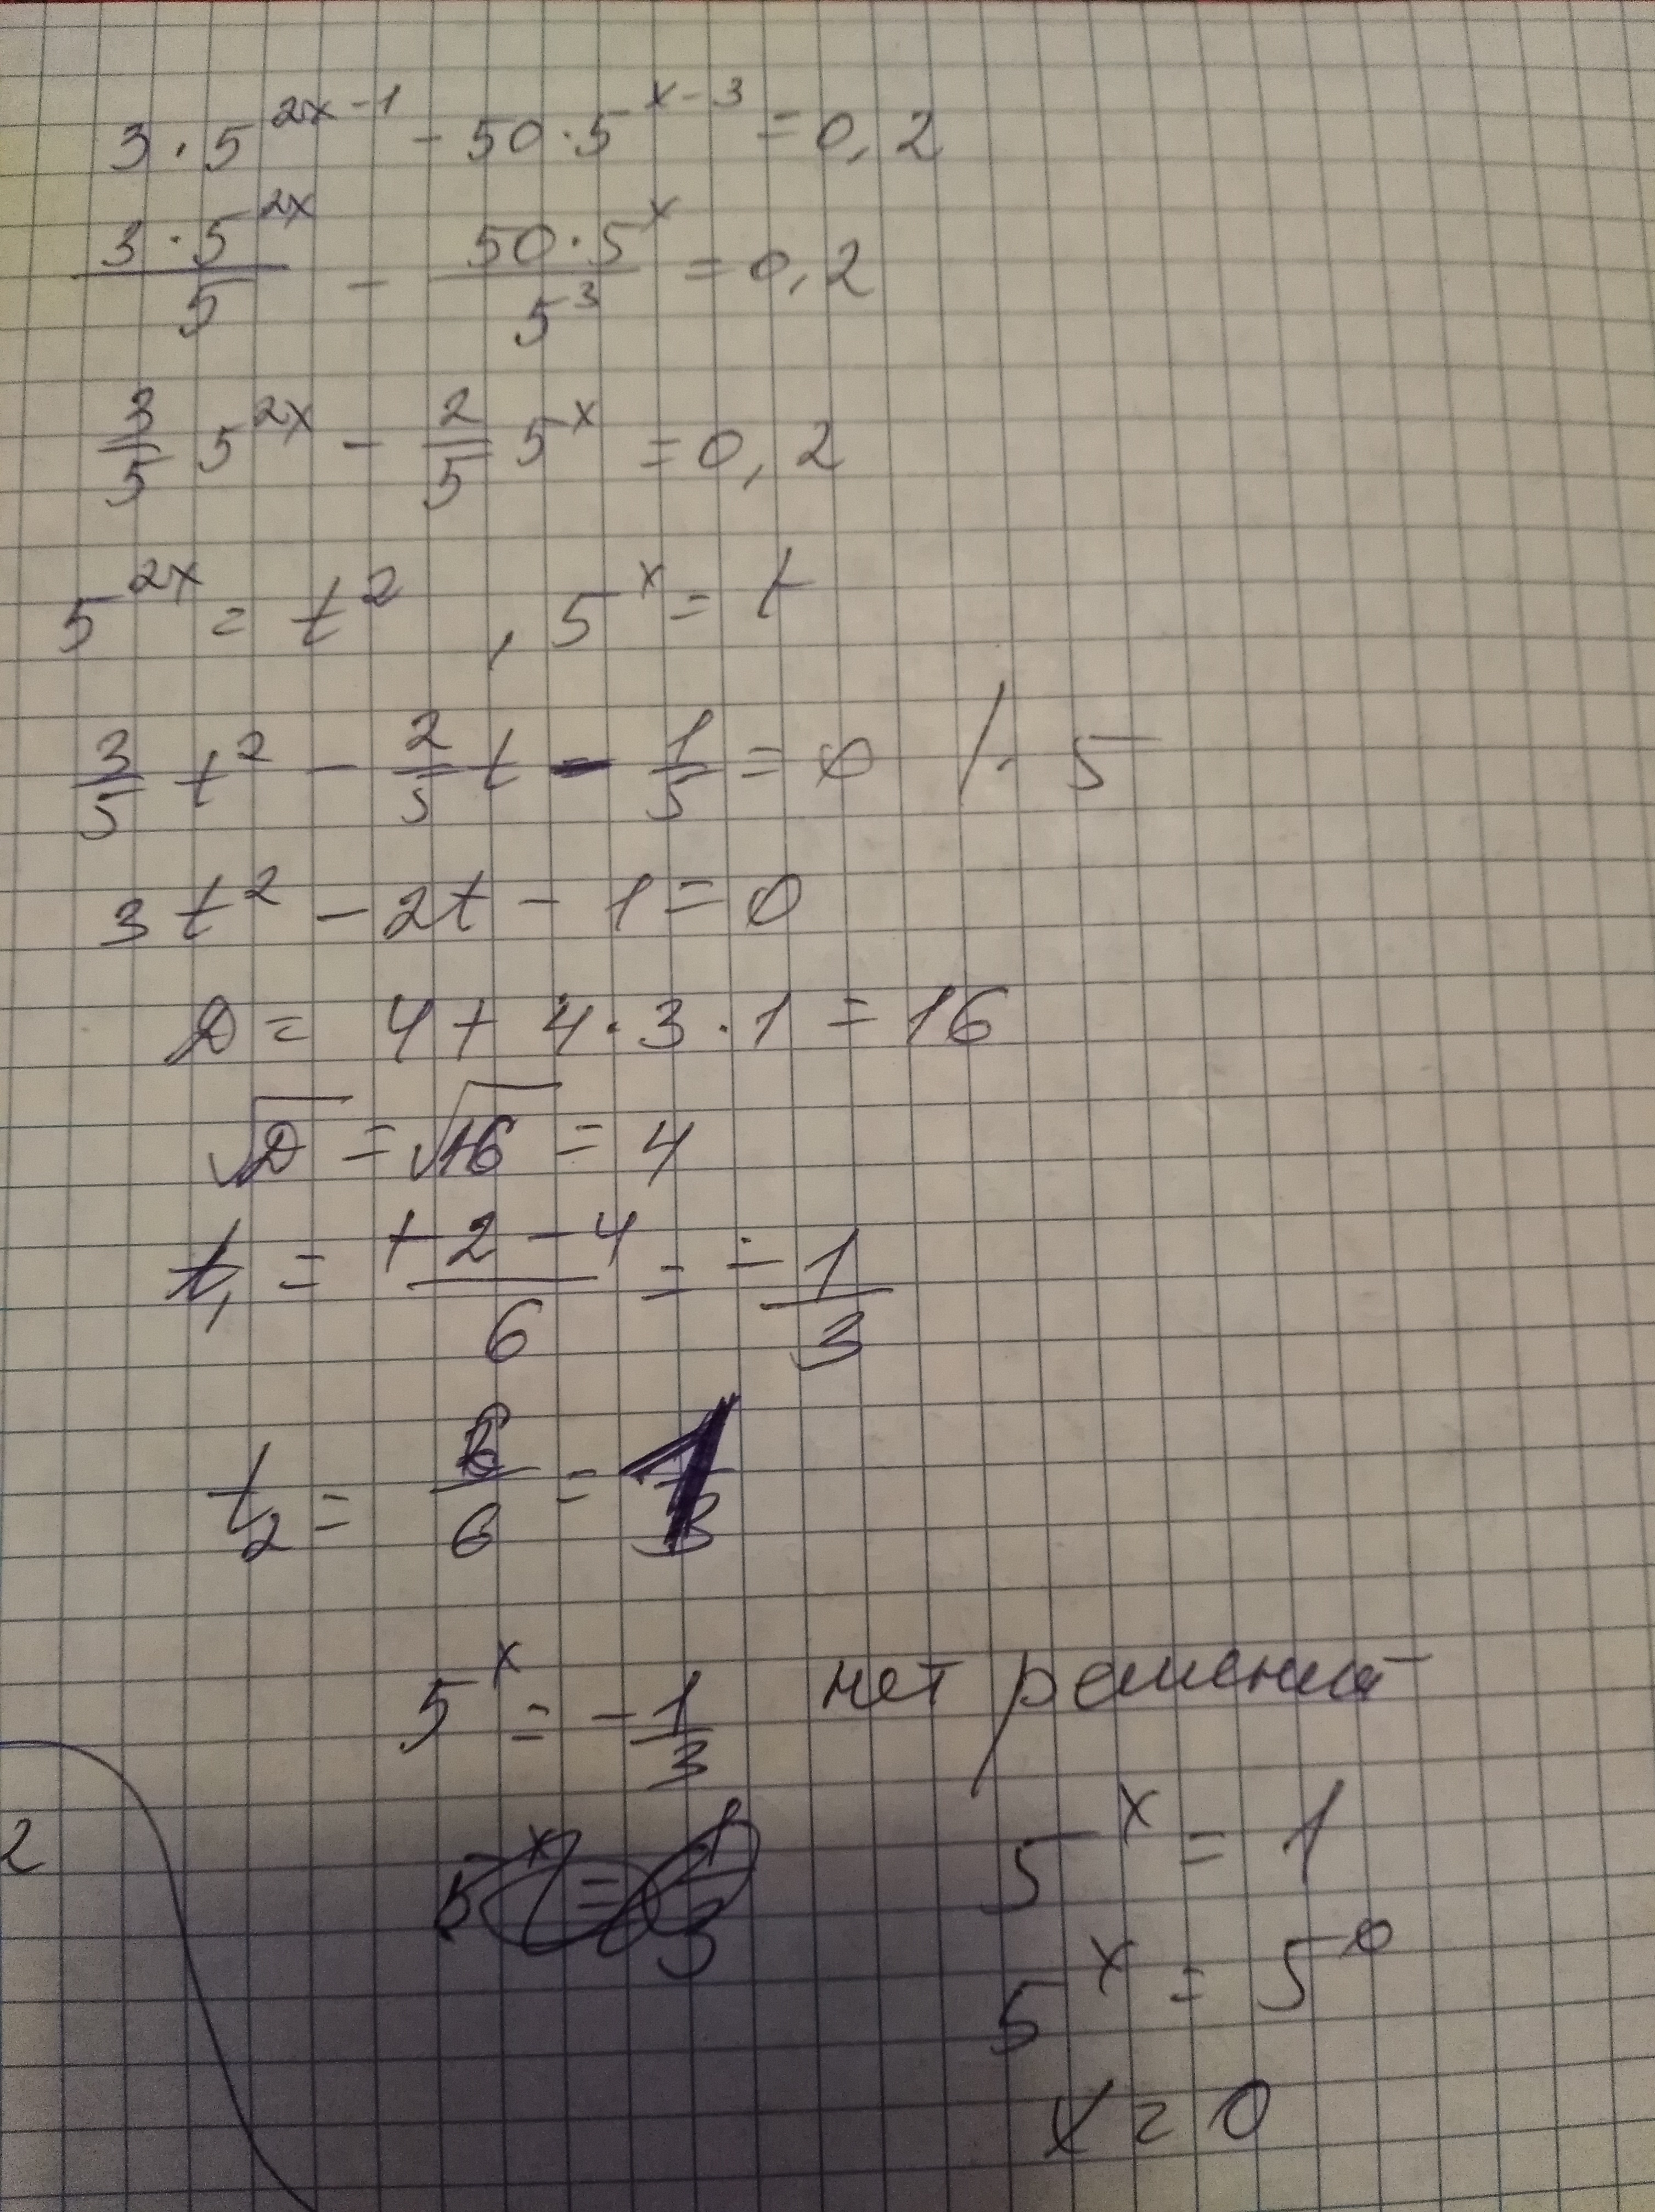 3·5^{2x-1} - 50·5^{x-3} = 0,2
\frac{3·5^{2x}}{5} - \frac{50·5^x}{5^3} = 0,2
\frac{3}{5} 5^{2x} - \frac{2}{5} 5^x = 0,2
5^{2x} = t^2 , 5^x = t
\frac{3}{5} t^2 - \frac{2}{5} t - \frac{1}{5} = 0 /· 5
3t^2 - 2t - 1 = 0
D = 4 + 4·3·1 = 16
\sqrt{D} = \sqrt{16} = 4
t_1 = \frac{+2-4}{6} = -\frac{1}{3}
t_2 = \frac{6}{6} = 1
5^x = -\frac{1}{3} нет решений
5^x = 1
5^x = 5^0
x = 0
2